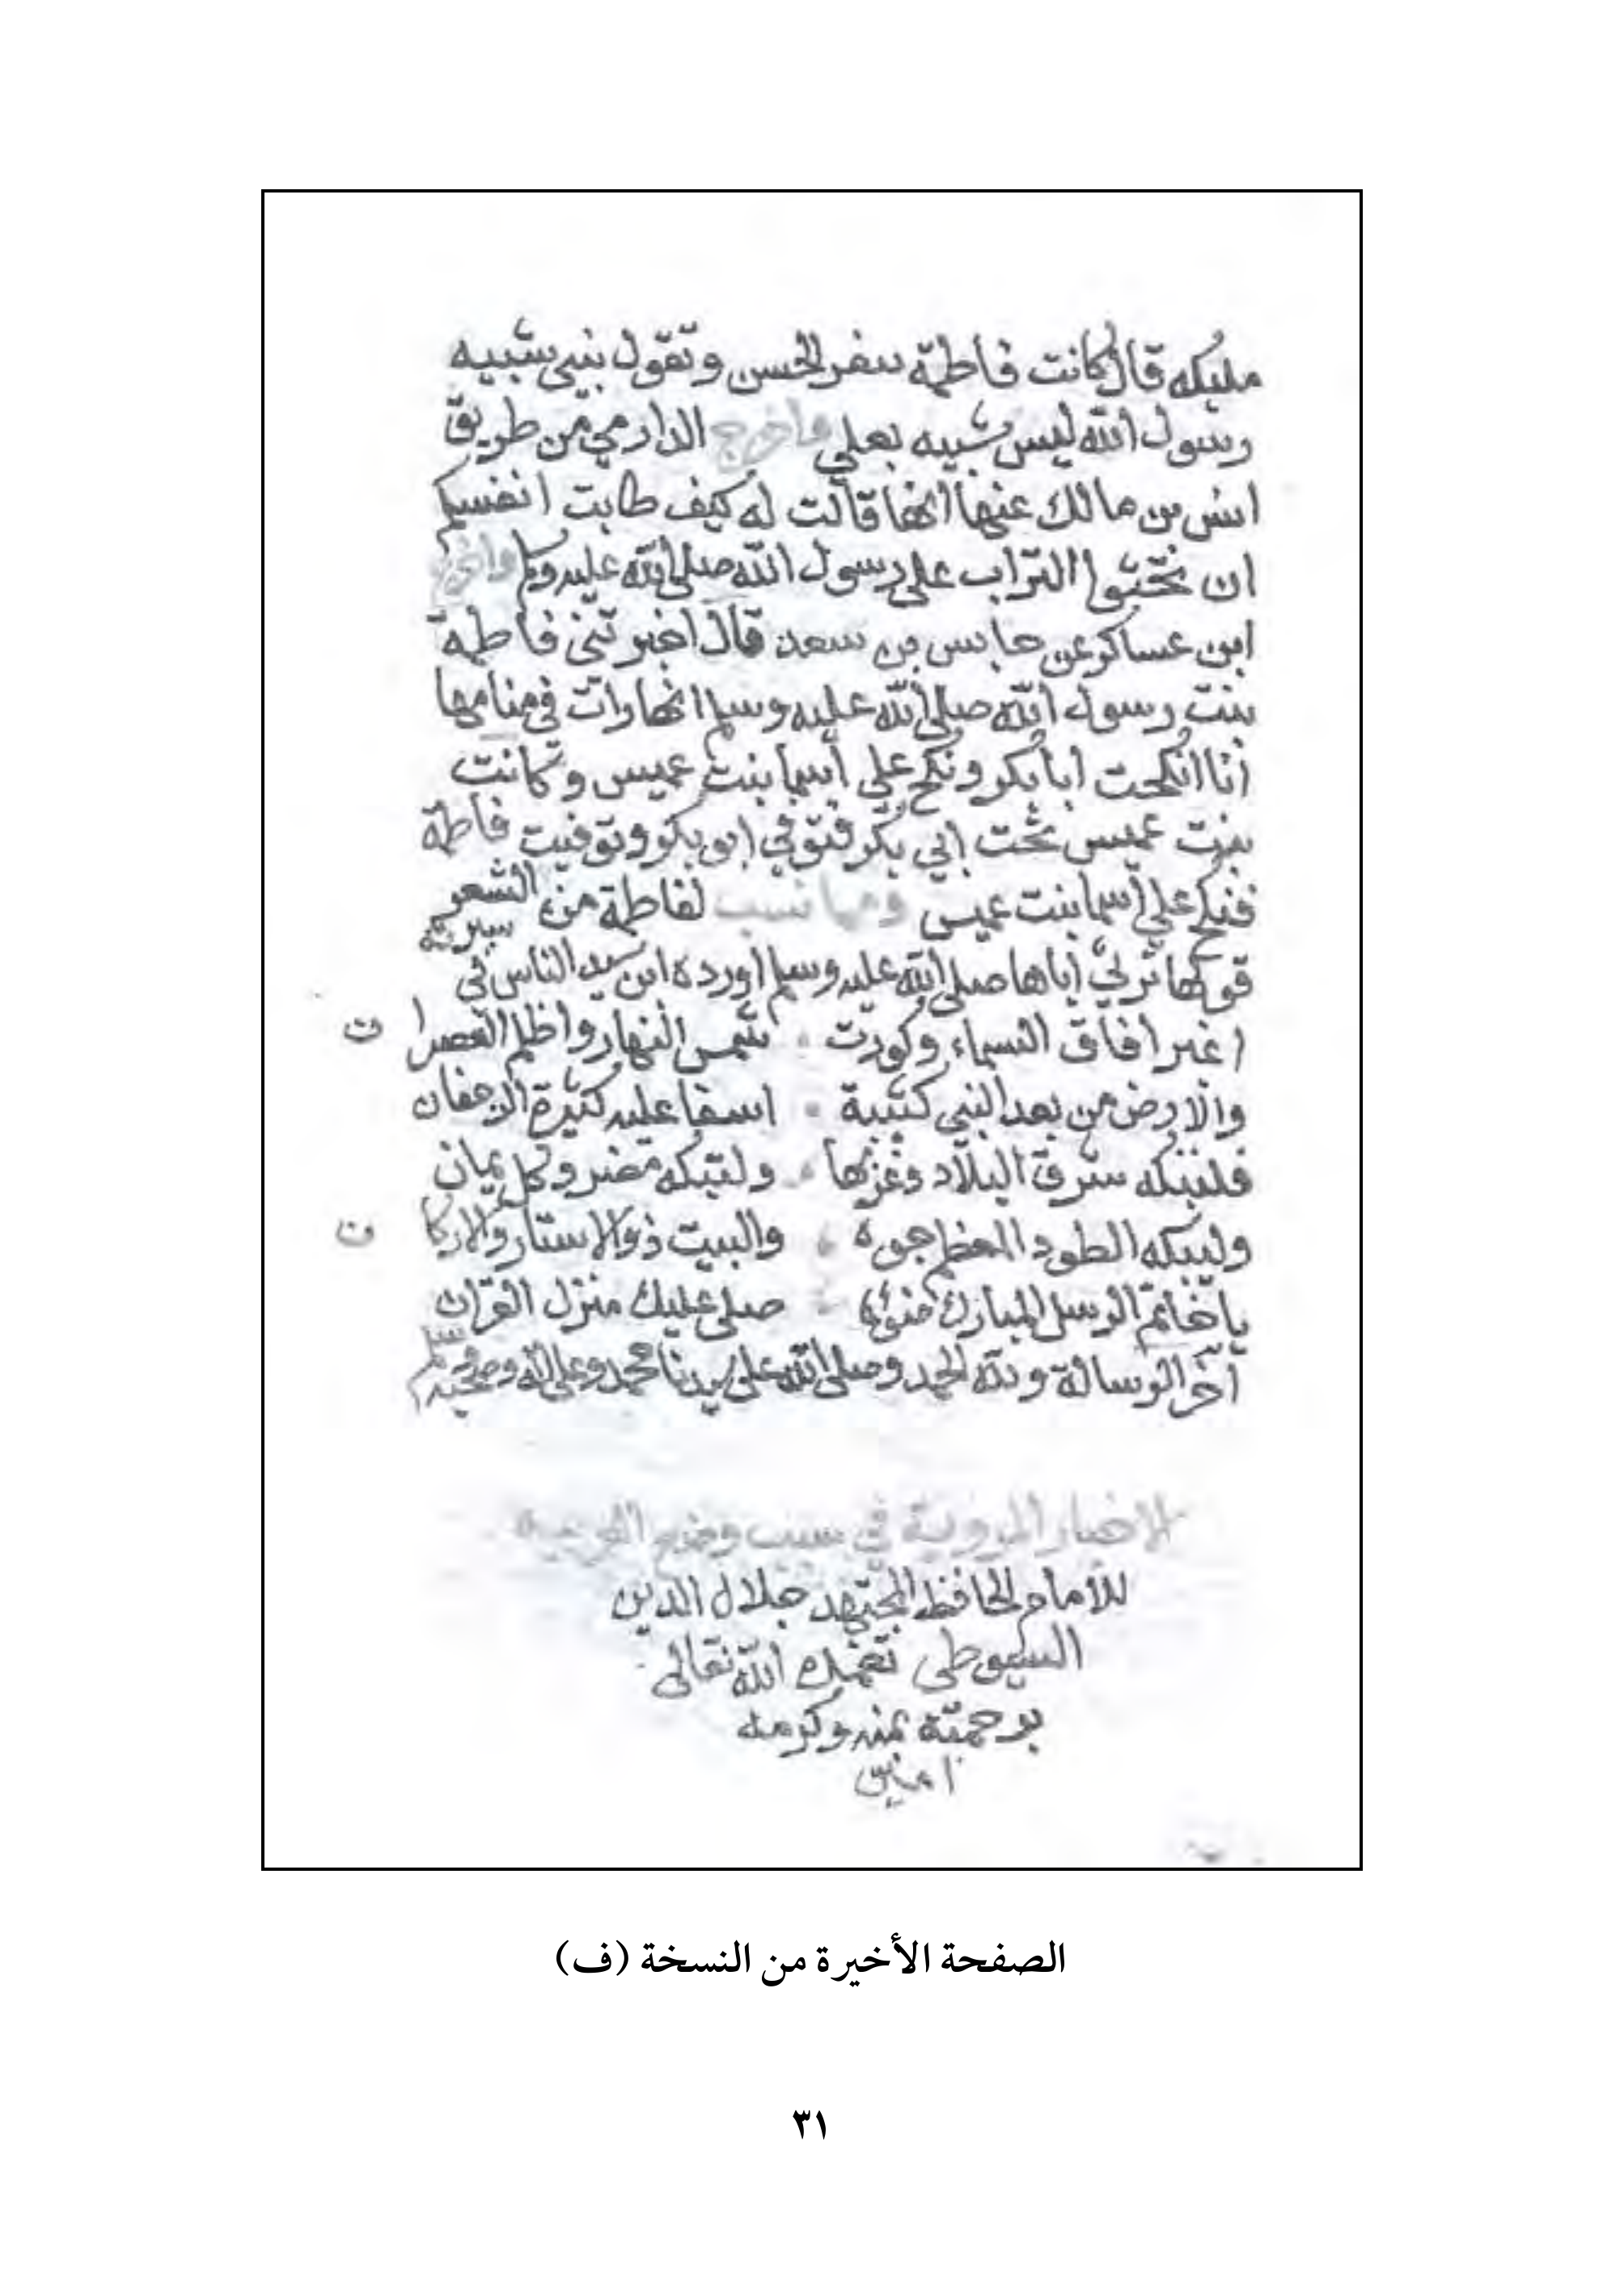 مليكه قال كانت فاطمة تنقز الحسن وتقول بني شبيه
رسول الله ليس شبيه بعلي واخرج الدارمي من طريق
انس بن مالك عنها انها قالت له كيف طابت انفسكم
ان تحثوا التراب على رسول الله صلى الله عليه وسلم واخرج
ابن عساكر عن حابس بن سعد قال اخبرتني فاطمة
بنت رسول الله صلى الله عليه وسلم انها رات في منامها
انا انكحت ابا بكر ونكح علي اسما بنت عميس وكانت
بنت عميس تحت ابي بكر فتوفي ابو بكر وتوفيت فاطمة
فنكح علي اسما بنت عميس ومما نسب لفاطمة من الشعر
قولها ترثي اباها صلى الله عليه وسلم اورده ابن سيد الناس في سيرته
اغبر افاق السماء وكورت شمس النهار واظلم العصران
والارض من بعد النبي كئيبة اسفا عليه كثيرة الرجفان
فلتبكه شرق البلاد وغربها ولتبكه مضر وكل يمان
وليبكه الطود المعظم جوه والبيت ذو الاستار والاركان
يا خاتم الرسل المبارك ضوئه صلى عليك منزل القران
آخر الرسالة ولله الحمد وصلى الله على سيدنا محمد وعلى اله وصحبه وسلم
الاخبار المروية في سبب وضع العربية
للامام الحافظ المجتهد جلال الدين
السيوطي تغمده الله تعالى
برحمته بمنه وكرمه
امين
الصفحة الأخيرة من النسخة (ف)
٣١